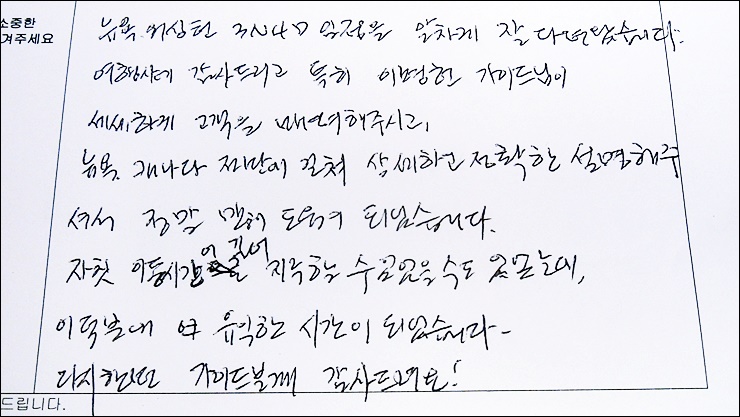 소중한
겨주세요
뉴욕 워싱턴 3박4일 일정을 알차게 잘 다녀왔습니다.
여행사에 감사드리고 특히 이명헌 가이드님이
세세하게 고객을 배려해주시고,
뉴욕, 캐나다 전반에 걸쳐 상세하고 정확한 설명해주
셔서 정말 많이 도움이 되었습니다.
자칫 이동시간이 길어 지루할 수 있는데,
이 덕분에 더 유익한 시간이 되었습니다-
다시한번 가이드분께 감사드려요!
드립니다.